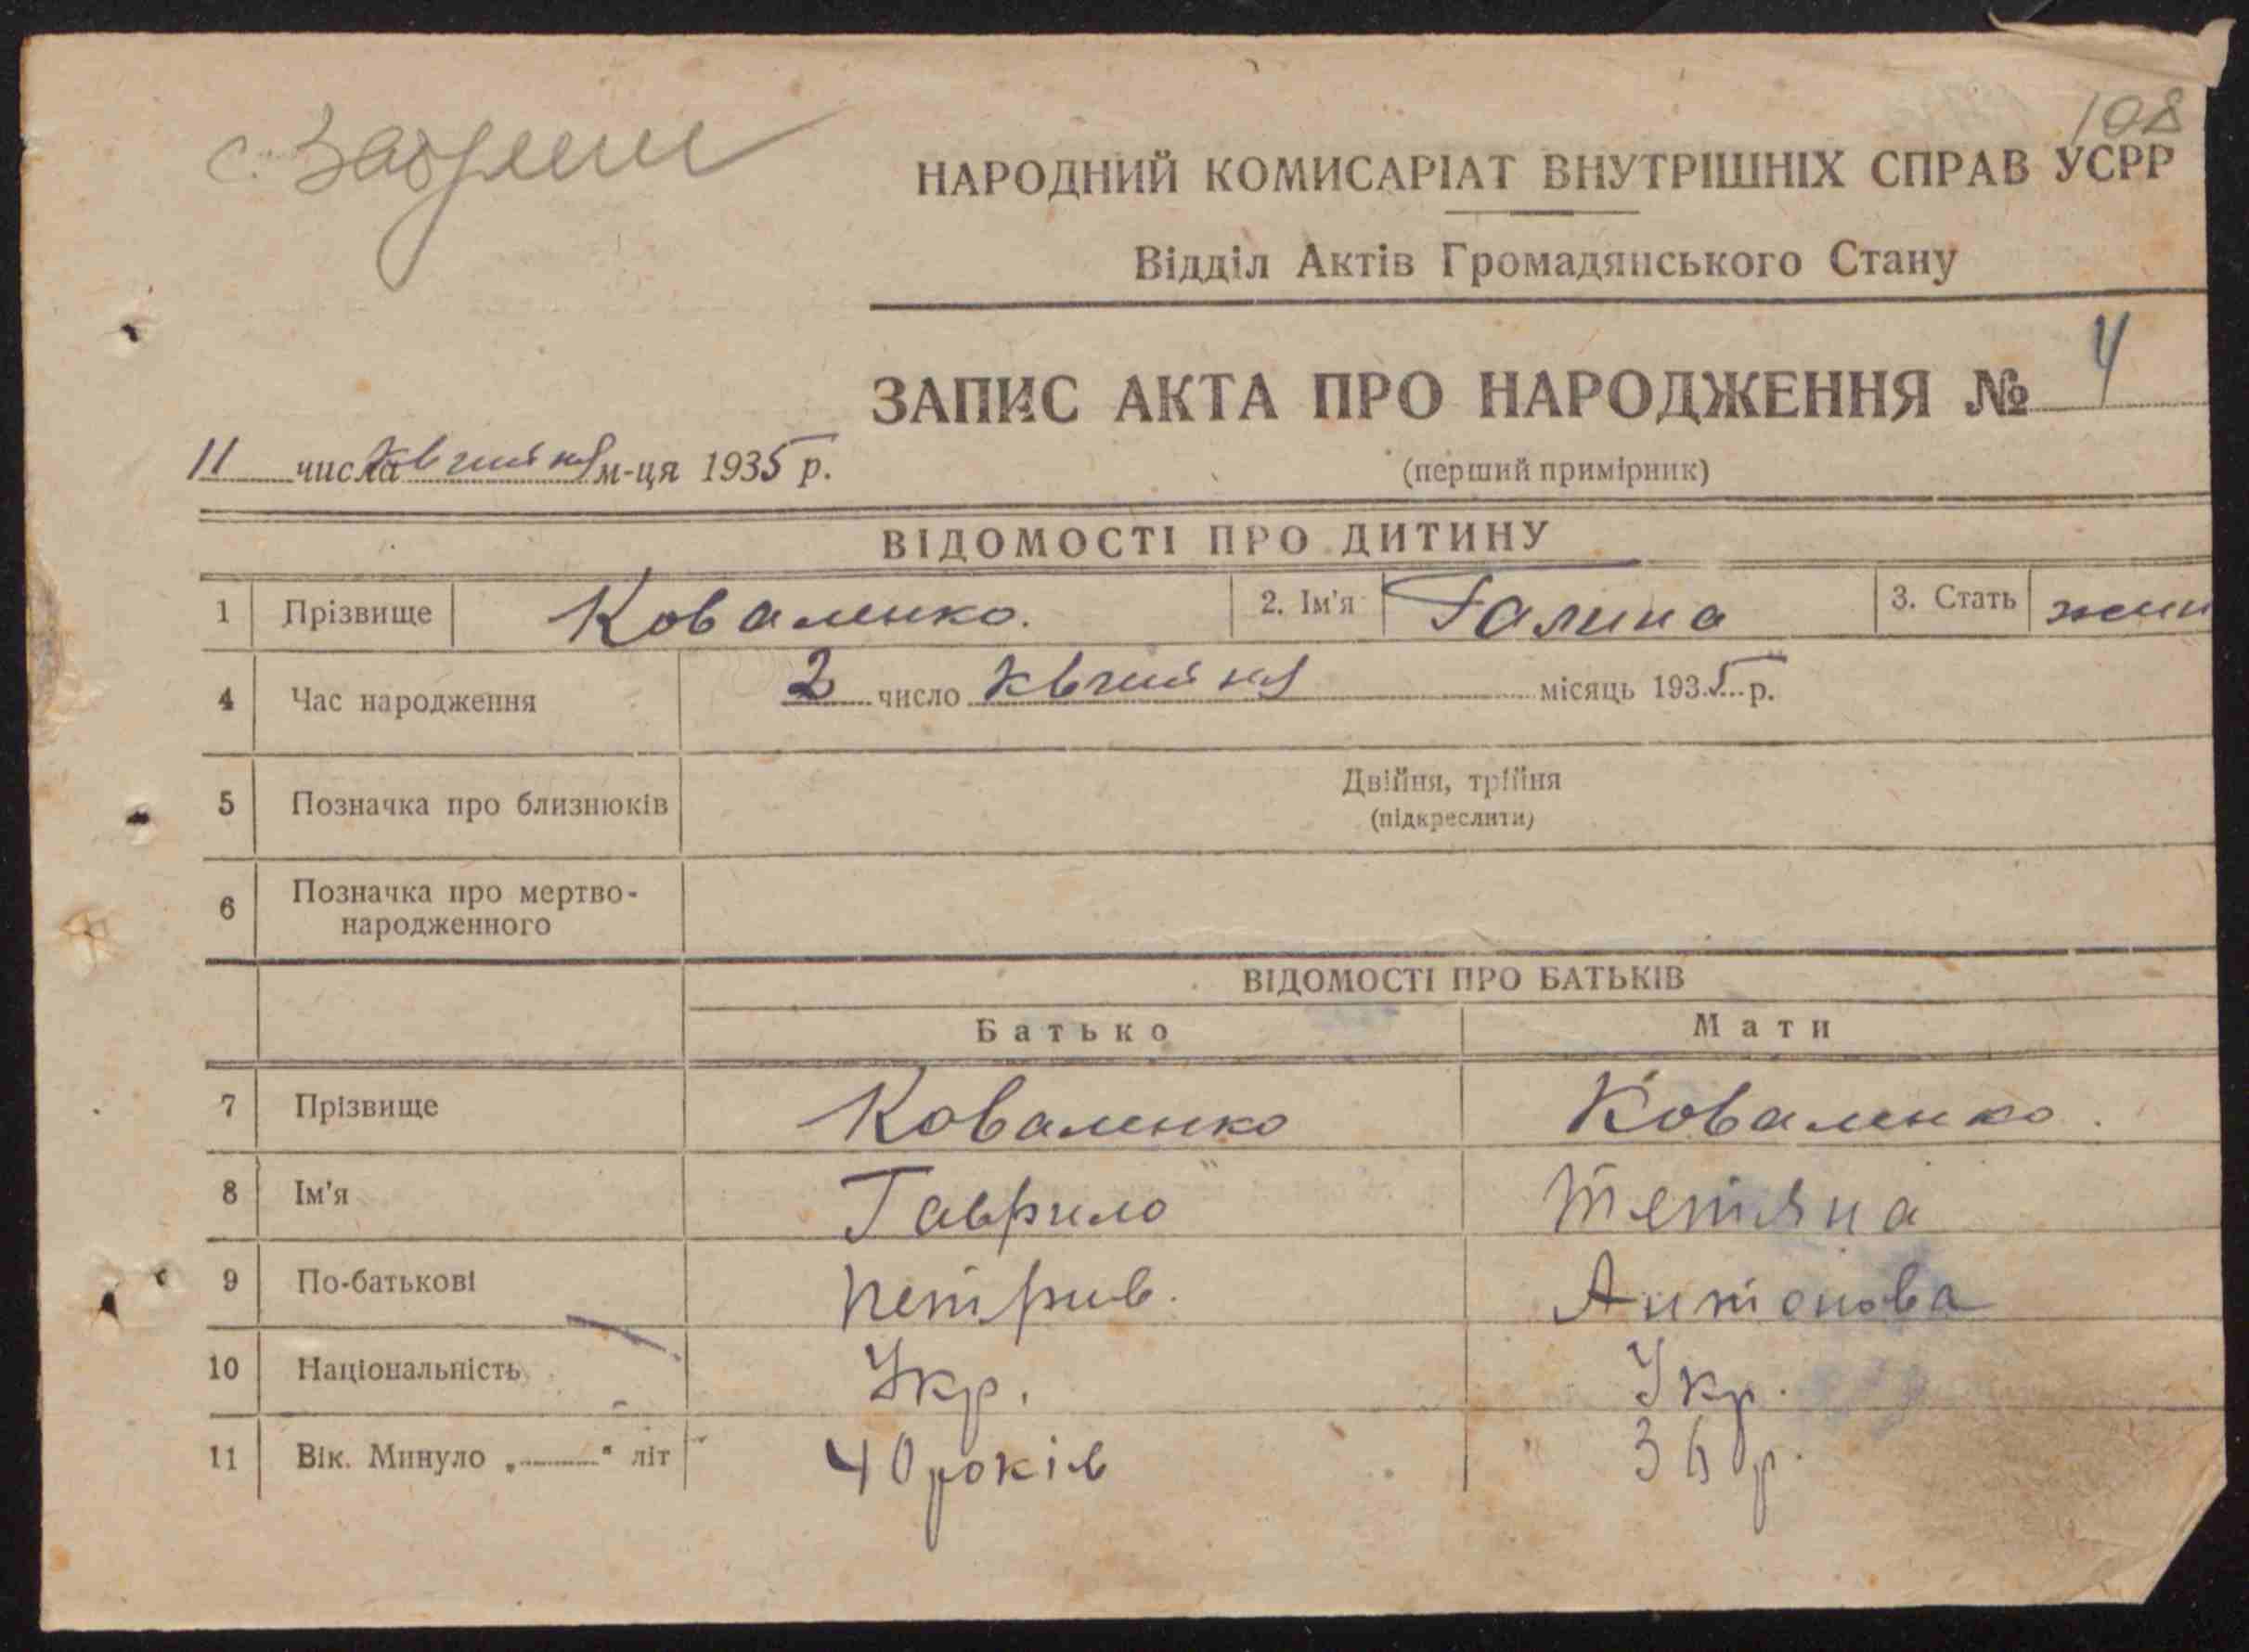 108
с.
НАРОДНИЙ КОМИСАРІАТ ВНУТРІШНІХ СПРАВ УСРР
Відділ Актів Громадянського Стану
ЗАПИС АКТА ПРО НАРОДЖЕННЯ № 4
11 числа квітня м-ця 1935 р.
(перший примірник)
ВІДОМОСТІ ПРО ДИТИНУ
1 Прізвище Коваленко. 2. Ім'я Галина 3. Стать жин
4 Час народження 2 число квітня місяць 1935 р.
Двійня, трійня
5 Позначка про близнюків
(підкреслити)
6 Позначка про мертво-
народженного
ВІДОМОСТІ ПРО БАТЬКІВ
Батько Мати
7 Прізвище Коваленко Коваленко.
8 Ім'я Гаврило Тетяна
9 По-батькові Петрив. Антонова
10 Національність Укр. Укр.
11 Вік. Минуло „ “ літ 40 років 36 р.